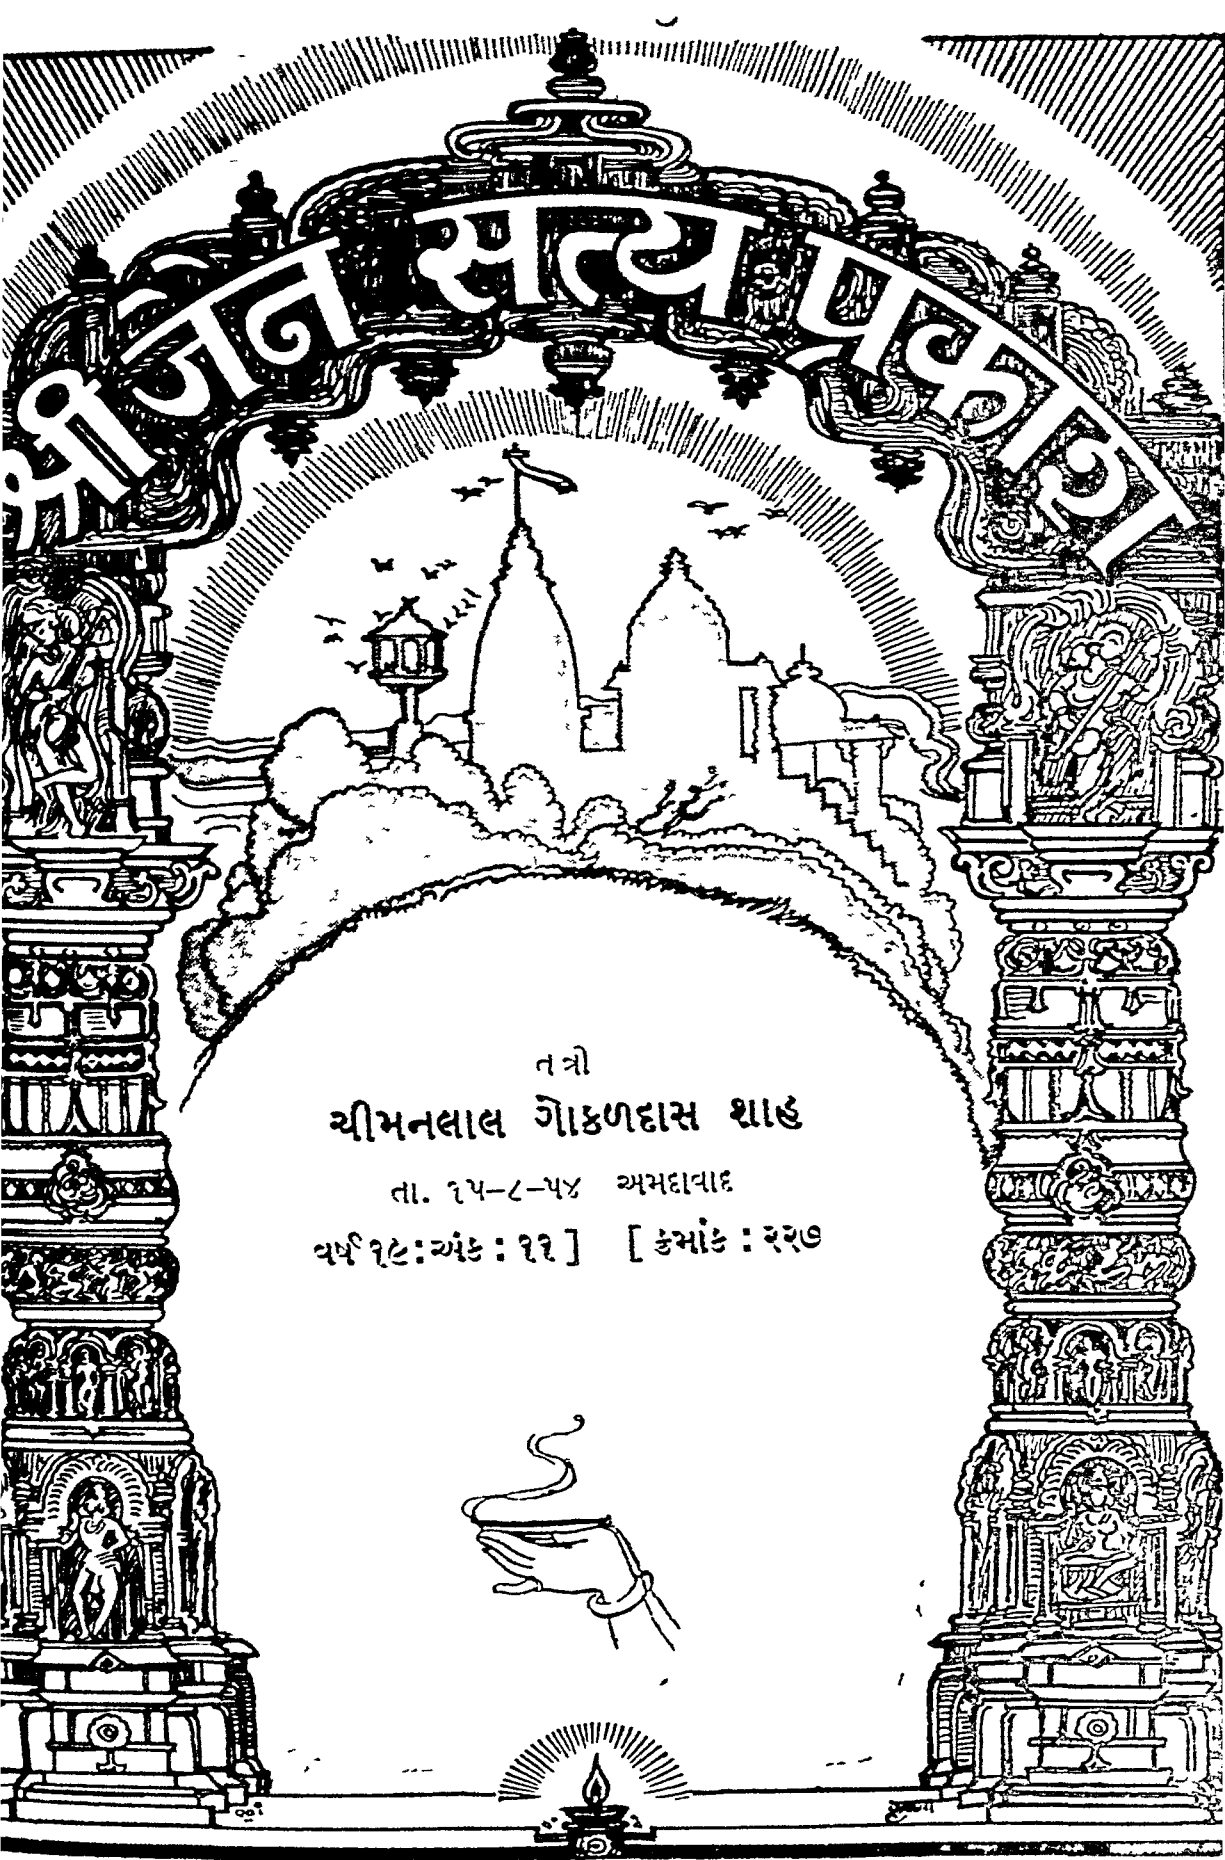 श्री जैन सत्य प्रकाश
તંત્રી
ચીમનલાલ ગોકળદાસ શાહ
તા. ૧૫-૮-૫૪ અમદાવાદ
વર્ષ ૧૯ : અંક : ૧૧ ] [ ક્રમાંક : ૨૨૭